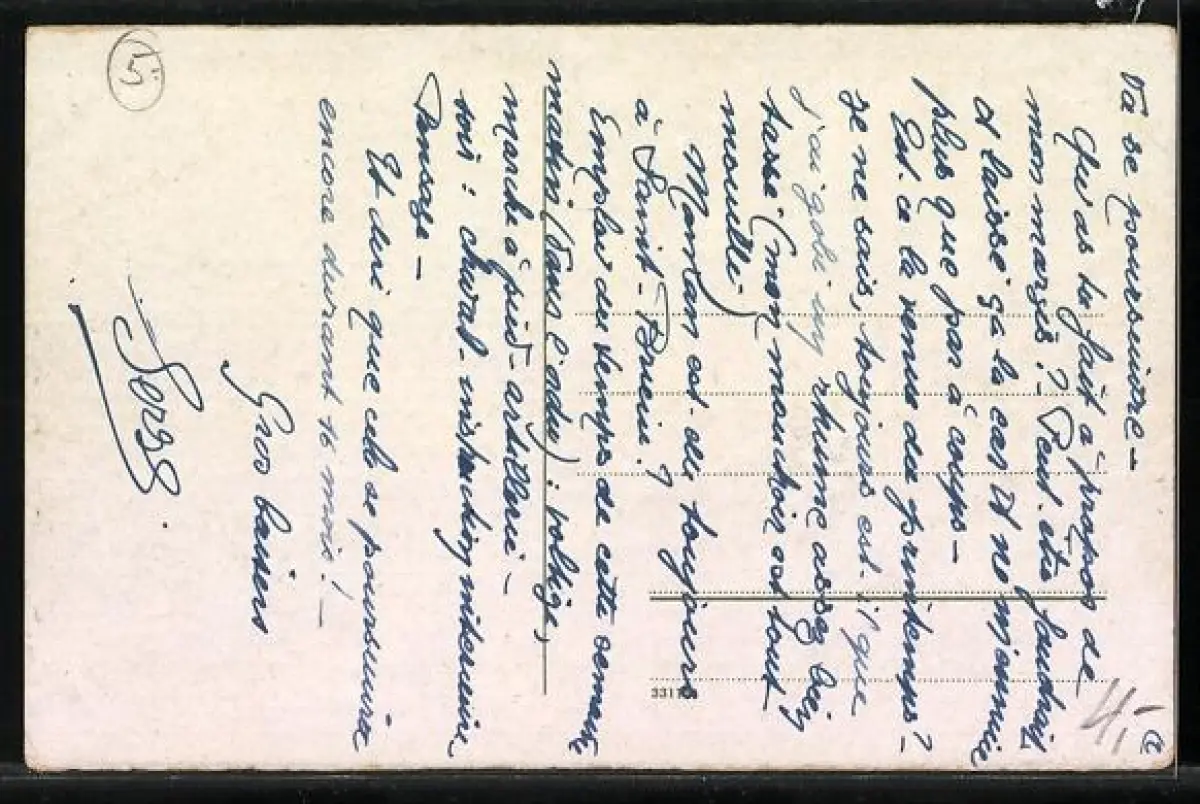 Va se poursuivre –
Qu'as tu fait à propos de
mon marsé ? – Peut être faudrait
il laisser ça là car il ne m'ennuie
plus que par à coups –
Est-ce la venue du printemps ?
Je ne sais, toujours est-il que
j'ai gobé un rhume assez bien
tassé (mon mouchoir est tout
mouillé)
Maman est-elle toujours
à Saint-Brieuc ?
Emploi du temps de cette semaine
matin (dans l'ordre) : voltige,
marche à pied – artillerie –
soir : cheval – instruction militaire
Pansage –
Et dire que cela se poursuivra
encore durant 16 mois ! –
Gros baisers
Serge
5
4,-
3311